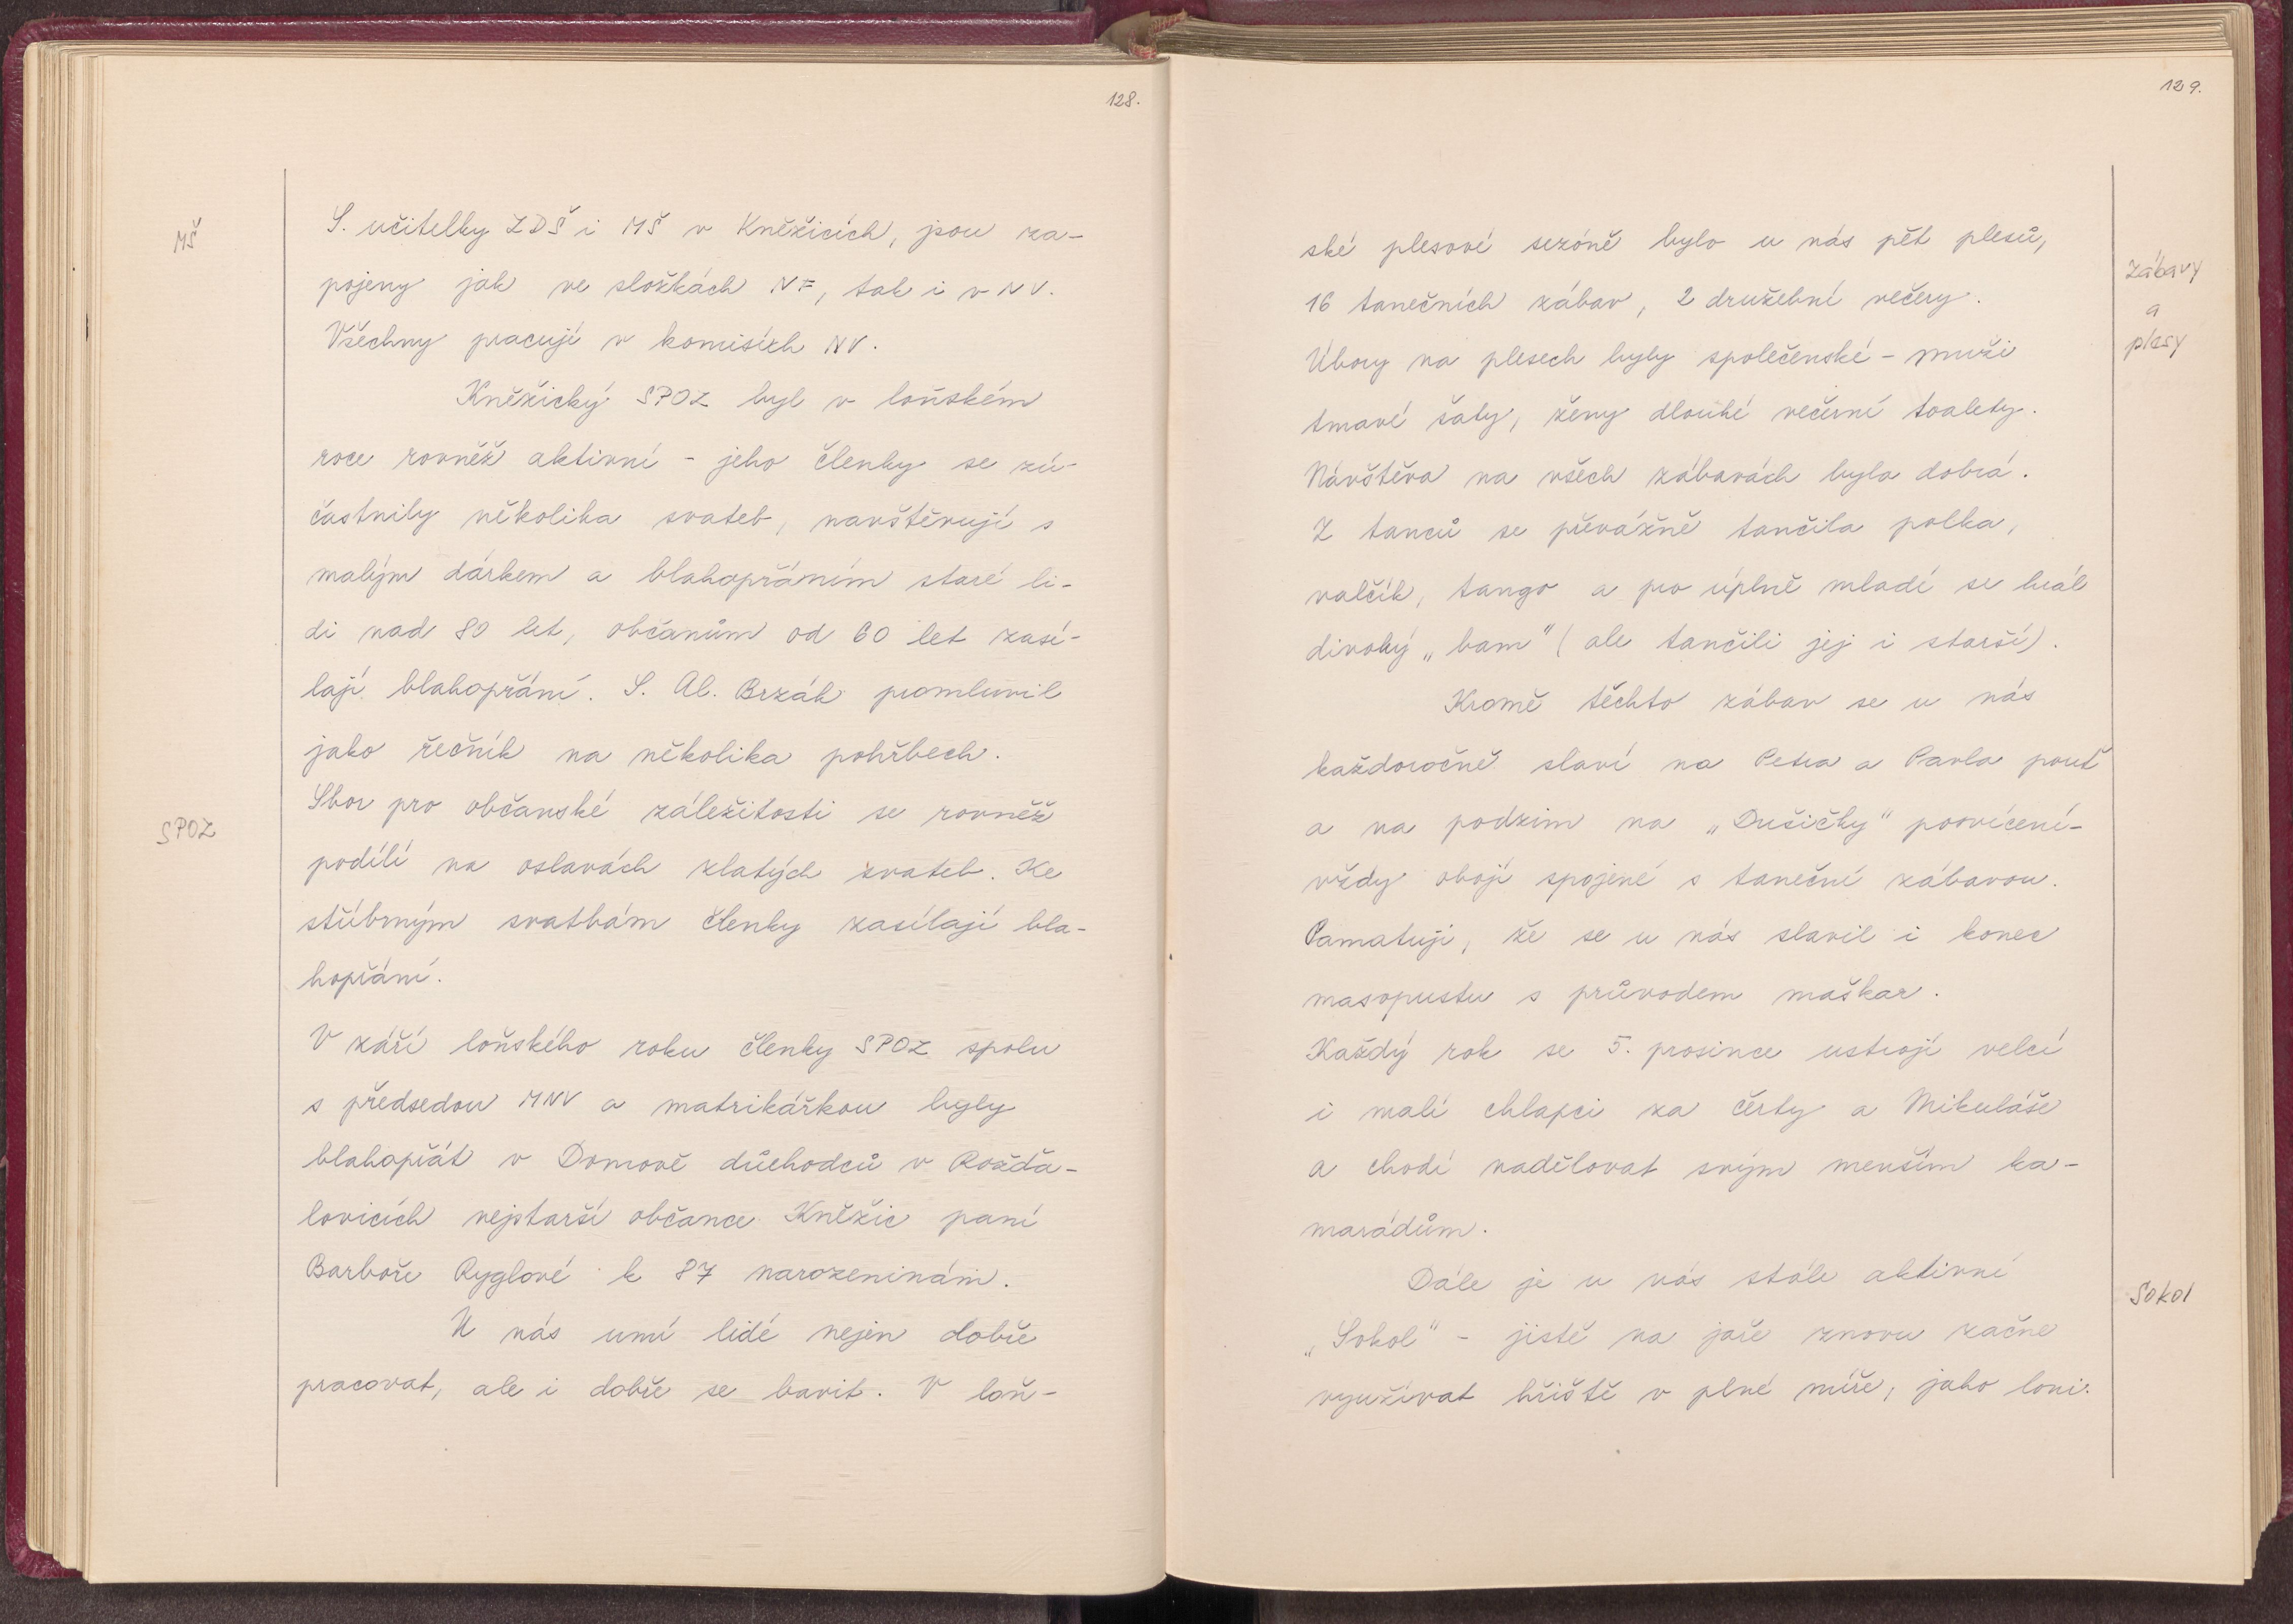 128.
MŠ
S. učitelky ZDŠ i MŠ v Kněžicích, jsou za-
pojeny jak ve složkách NF, tak i v NV.
Všechny pracují v komisích NV.
Kněžický SPOZ byl v loňském
roce rovněž aktivní - jeho členky se zú-
častnily několika svateb, navštěvují s
malým dárkem a blahopřáním staré li-
di nad 80 let, občanům od 60 let zasí-
lají blahopřání. S. Al. Brzák promluvil
jako řečník na několika pohřbech.
Sbor pro občanské záležitosti se rovněž
SPOZ
podílí na oslavách zlatých svateb. Ke
stříbrným svatbám členky zasílají bla-
hopřání.
V září loňského roku členky SPOZ spolu
s předsedou MNV a matrikářkou byly
blahopřát v Domově důchodců v Rožďa-
lovicích nejstarší občance Kněžic paní
Barboře Ryglové k 87 narozeninám.
U nás umí lidé nejen dobře
pracovat, ale i dobře se bavit. V loň-
129.
ské plesové sezóně bylo u nás pět plesů,
16 tanečních zábav, 2 družební večery.
zábavy
a
plesy
Úbory na plesech byly společenské - muži
tmavé šaty, ženy dlouhé večerní toalety.
Návštěva na všech zábavách byla dobrá.
Z tanců se převážně tančila polka,
valčík, tango a pro úplně mladé se hrál
divoký „bam" (ale tančili jej i starší).
Kromě těchto zábav se u nás
každoročně slaví na Petra a Pavla pouť
a na podzim na „Dušičky" posvícení-
vždy obojí spojené s taneční zábavou.
Pamatuji, že se u nás slavil i konec
masopustu s průvodem maškar.
Každý rok se 5. prosince ustrojí velcí
i malí chlapci za čerty a Mikuláše
a chodí nadělovat svým menším ka-
marádům.
Dále je u nás stále aktivní
Sokol
„Sokol" - jistě na jaře znovu začne
využívat hřiště v plné míře, jako loni.